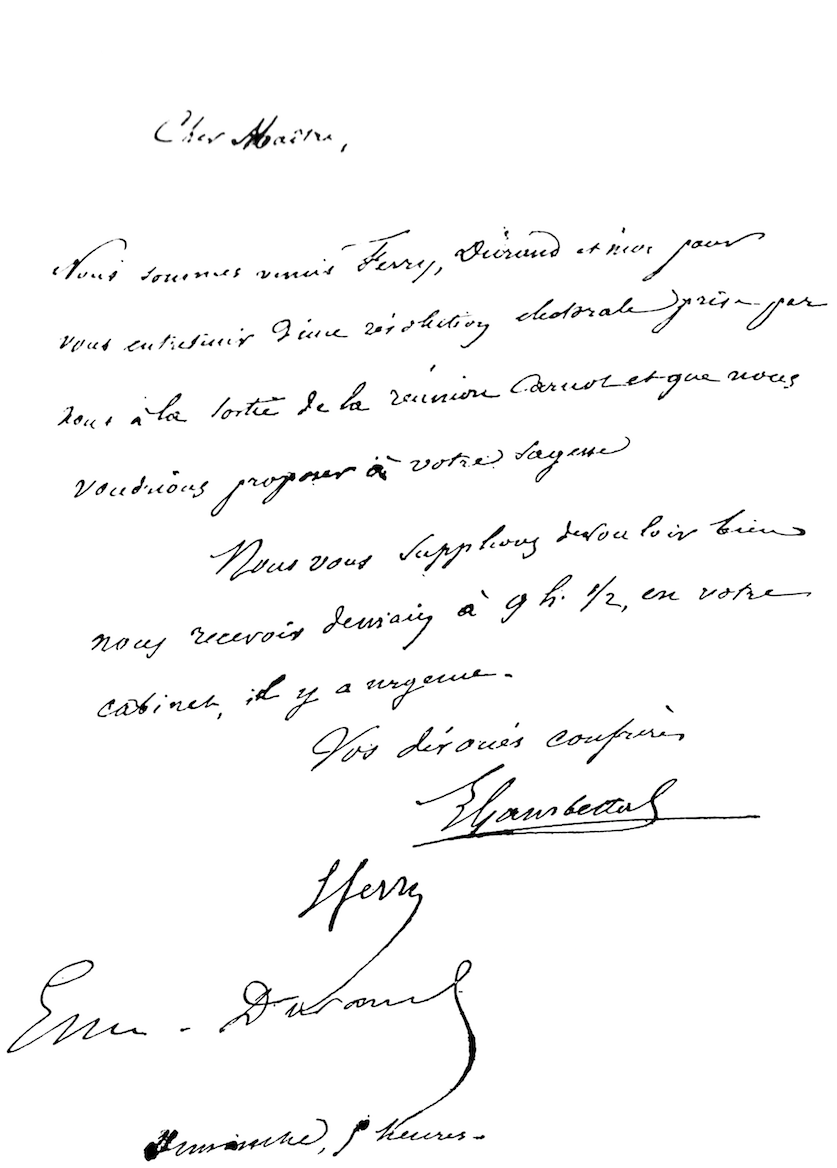 Cher Maître,
Nous sommes venus Ferry, Durand et moi pour
vous entretenir d'une résolution électorale prise par
nous à la sortie de la réunion Carnot et que nous
voudrions proposer à votre sagesse
Nous vous supplions de vouloir bien
nous recevoir demain à 9 h. 1/2, en votre
cabinet, il y a urgence.
Vos dévoués confrères
LGambetta
JFerry
Em. Durand
Dimanche, 5 heures.